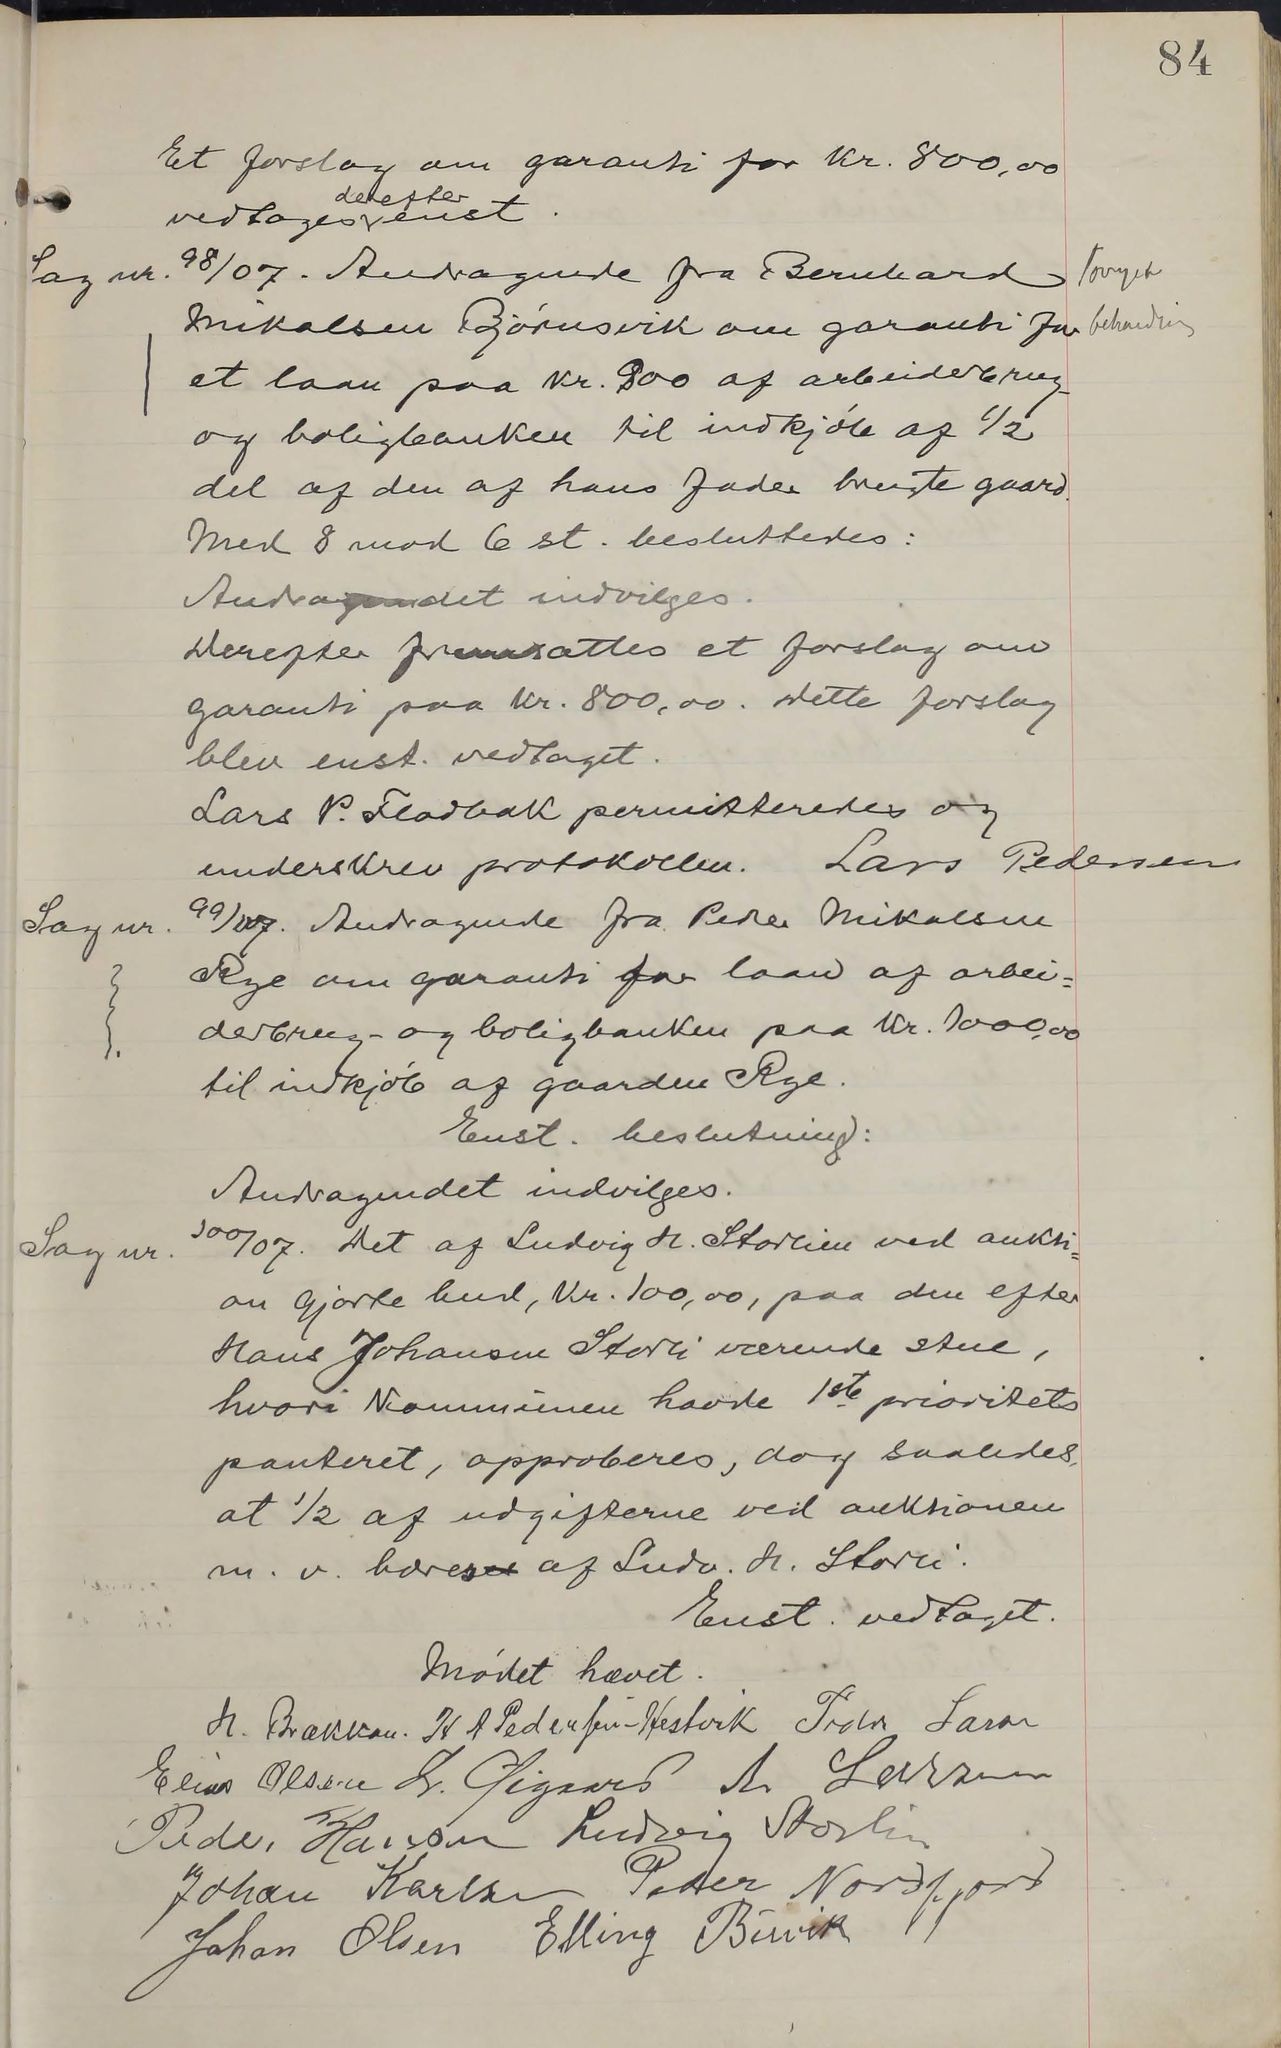 84
Et forslag om garanti for Kr. 800,00
vedtages derefter enst.
Sag nr. 98/07. Andragende fra Bernhard
Mikalsen Bjørnsvik om garanti for
behandling
et laan paa Kr. 900 af arbeiderbrug-
og boligbanken til indkjøb af 1/2
del af den af hans fader brugte gaard.
Med 8 mod 6 st. besluttedes:
Andragendet indvilges.
Derefter fremsattes et forslag om
garanti paa Kr. 800,00. Dette forslag
blev enst. vedtaget.
Lars P. Flodbak permitteredes og
underskrev protokollen. Lars Pedersen
Sag nr. 99/07. Andragende fra Peder Mikalsen
Rye om garanti for laan af arbei=
derbrug- og boligbanken paa Kr. 1000,00
til indkjøb af gaarden Rye.
Enst. beslutning:
Andragendet indvilges.
Sag nr. 100/07. Det af Ludvig H. Storlien ved aukti=
on gjorte bud, Kr. 100,00, paa den efter
Hans Johansen Storli værende stue,
hvori Kommunen havde 1ste prioritets
panteret, approberes, dog saaledes,
at 1/2 af udgifterne ved auktionen
m. v. bæres af Ludv. H. Storli.
Enst. vedtaget.
Mødet hævet.
H. Brækkan. H A Pedersen-Hestvik
Elias Olsen
Peder Hanson Ludvig Storlin
Johan Karlsen Peder Nordfjord
Johan Olsen Elling